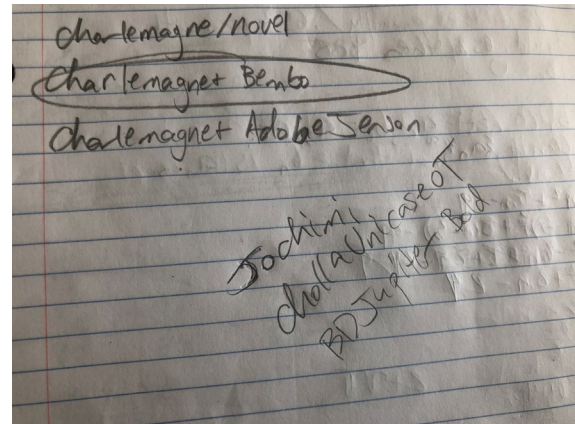 Charlemagne/novel
Charlemagne+ Bembo
Charlemagne+ Adobe Jenson
Jochimi
Cholla Unicase OT
BD Jupiter Bold